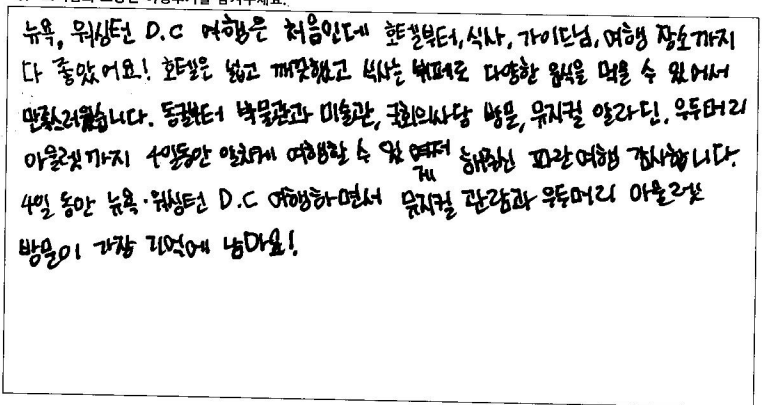 뉴욕, 워싱턴 D.C 여행은 처음인데 호텔부터, 식사, 가이드님, 여행 장소까지
다 좋았어요! 호텔은 넓고 깨끗했고 식사는 뷔페로 다양한 음식을 먹을 수 있어서
만족스러웠습니다. 동굴부터 박물관과 미술관, 국회의사당 방문, 뮤지컬 알라딘, 우두머리
아울렛까지 4일동안 알차게 여행할 수 있게 해주신 파란여행 감사합니다.
4일 동안 뉴욕·워싱턴 D.C 여행하면서 뮤지컬 관람과 우두머리 아울렛
방문이 가장 기억에 남아요!